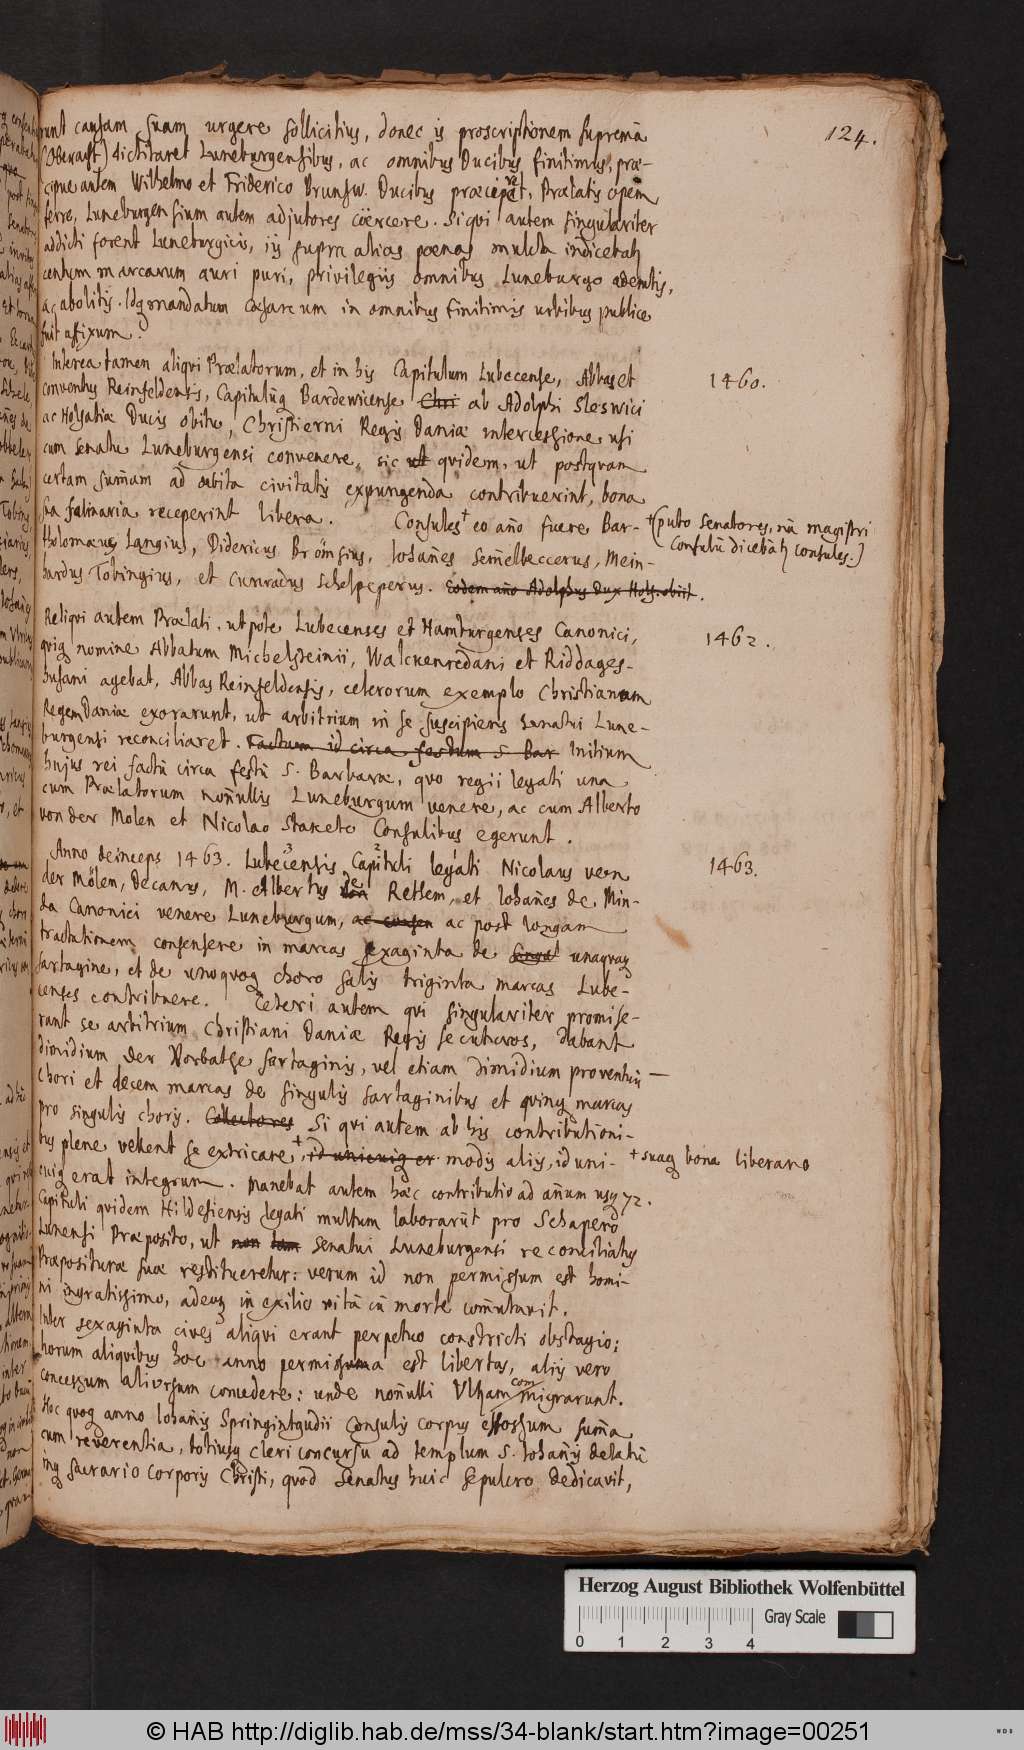 124.
runt causam suam urgere sollicitius, donec is proscriptionem supremā
(Oberacht) dictitaret Luneburgensibus, ac omnibus Ducibus finitimis, præ-
cipue autem Wilhelmo et Friderico Brunsw. Ducibus præciperet, Prælatis opem
ferre, Luneburgensium autem adjutores cöercere. Siqui autem singulariter
addicti forent Luneburgicis, iis supra alias poenas mulcta indicebatʒ
centum marcarum auri puri, privilegiis omnibus Luneburgo ademtis,
ac abolitis. Idqʒ mandatum Cæsareum in omnibus finitimis urbibus publice
fuit affixum.
Interea tamen aliqui Prælatorum, et in his Capitulum Lubecense, Abbas et
1460.
conventus Reinfeldensis, Capitulūq Bardewicense Chri ab Adolphi Sleswici
ac Holsatiæ Ducis obitu, Christierni Regis Daniæ intercessione usi
cum Senatu Luneburgensi convenere, sic ut quidem, ut postquam
certam sum̄am ad debita civitatis expungenda contribuerint, bona
sua salinaria receperint libera. Consules + eo año fuere Bar-
+ (puto Senatores, nā magistri
Consulū dicebātʒ Consules.)
tholomæus Langius, Didericus Brömsius, Johañes Sem̄elbeccerus, Mein-
hardus Tobingius, et Cunradus Schelpeperus. Eodem año Adolphus Dux Hols. obiit.
Reliqui autem Prælati, utpote Lubecenses et Hamburgenses Canonici,
1462.
quiq nomine Abbatum Michelsteinii, Walckenredani et Riddages-
husani agebat, Abbas Reinfeldensis, ceterorum exemplo Christianum
Regem Daniæ exorarunt, ut arbitrium in se suscipiens Senatui Lune-
burgensi reconciliaret. Factum id circa festum S. Bar Initium
hujus rei factū circa festū S. Barbaræ, quo regii legati una
cum Prælatorum nonñullis Luneburgum venere, ac cum Alberto
von der Molen et Nicolao Stakete Consulibus egerunt.
Anno deinceps 1463. Lubecensis Capituli legati Nicolaus ven
1463.
der Mölen, Decanus, M. Albertus von de Retsem, et Johañes de Min-
da Canonici venere Luneburgum, ac consen ac post longam
tractationem consensere in marcas sexaginta de singul unaquaq
sartagine, et de unoquoq choro salis triginta marcas Lube-
censes contribuere. Ceteri autem qui singulariter promise-
rant se arbitrium Christiani Daniæ Regis secuturos, dabant
dimidium der Vorbathe sartaginis, vel etiam dimidium proventūs
Chori et decem marcas de singulis sartaginibus et quinq marcas
pro singulis choris. Collectores Si qui autem ab his contributioni-
bus plene vellent se extricare +, id unicuiq er modis aliis, id uni-
+ suaq bona liberare
cuiq erat integrum. Manebat autem hæc contributio ad añum usq 72.
Capituli quidem Hildesiensis legati multum laborarūt pro Schapero
Lunensi Præposito, ut non tam Senatui Luneburgensi reconciliatus
Præposituræ suæ restitueretur: verum id non permissum est homi-
ni ingratissimo, adeoq in exilio vitā cū morte com̄utavit.
Inter sexaginta cives aliqui erant perpetuo constricti obstagio;
horum aliquibus hoc anno permissa est libertas, aliis vero
concessum aliorsum concedere: unde nonñulli Ulsam commigrarunt.
Hoc quoq anno Johañis Springintgudii Consulis corpus effossum sum̄a
cum reverentia, totiusq cleri concursu ad templum S. Johañis delatū
inq sacrario Corporis Christi, quod Senatus huic sepulcro dedicavit,
Herzog August Bibliothek Wolfenbüttel
Gray Scale
0 1 2 3 4
© HAB http://diglib.hab.de/mss/34-blank/start.htm?image=00251